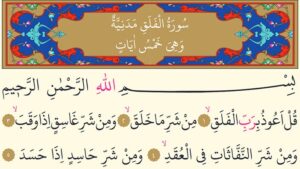 سُورَةُ الْفَلَقِ مَدَنِيَّةٌ
وَهِيَ خَمْسُ اٰيَاتٍ
بِسْمِ اللهِ الرَّحْمٰنِ الرَّحٖيمِ
قُلْ اَعُوذُ بِرَبِّ الْفَلَقِ ﴿١﴾ مِنْ شَرِّ مَا خَلَقَ ﴿٢﴾ وَمِنْ شَرِّ غَاسِقٍ اِذَا وَقَبَ ﴿٣﴾
وَمِنْ شَرِّ النَّفَّاثَاتِ فِي الْعُقَدِ ﴿٤﴾ وَمِنْ شَرِّ حَاسِدٍ اِذَا حَسَدَ ﴿٥﴾